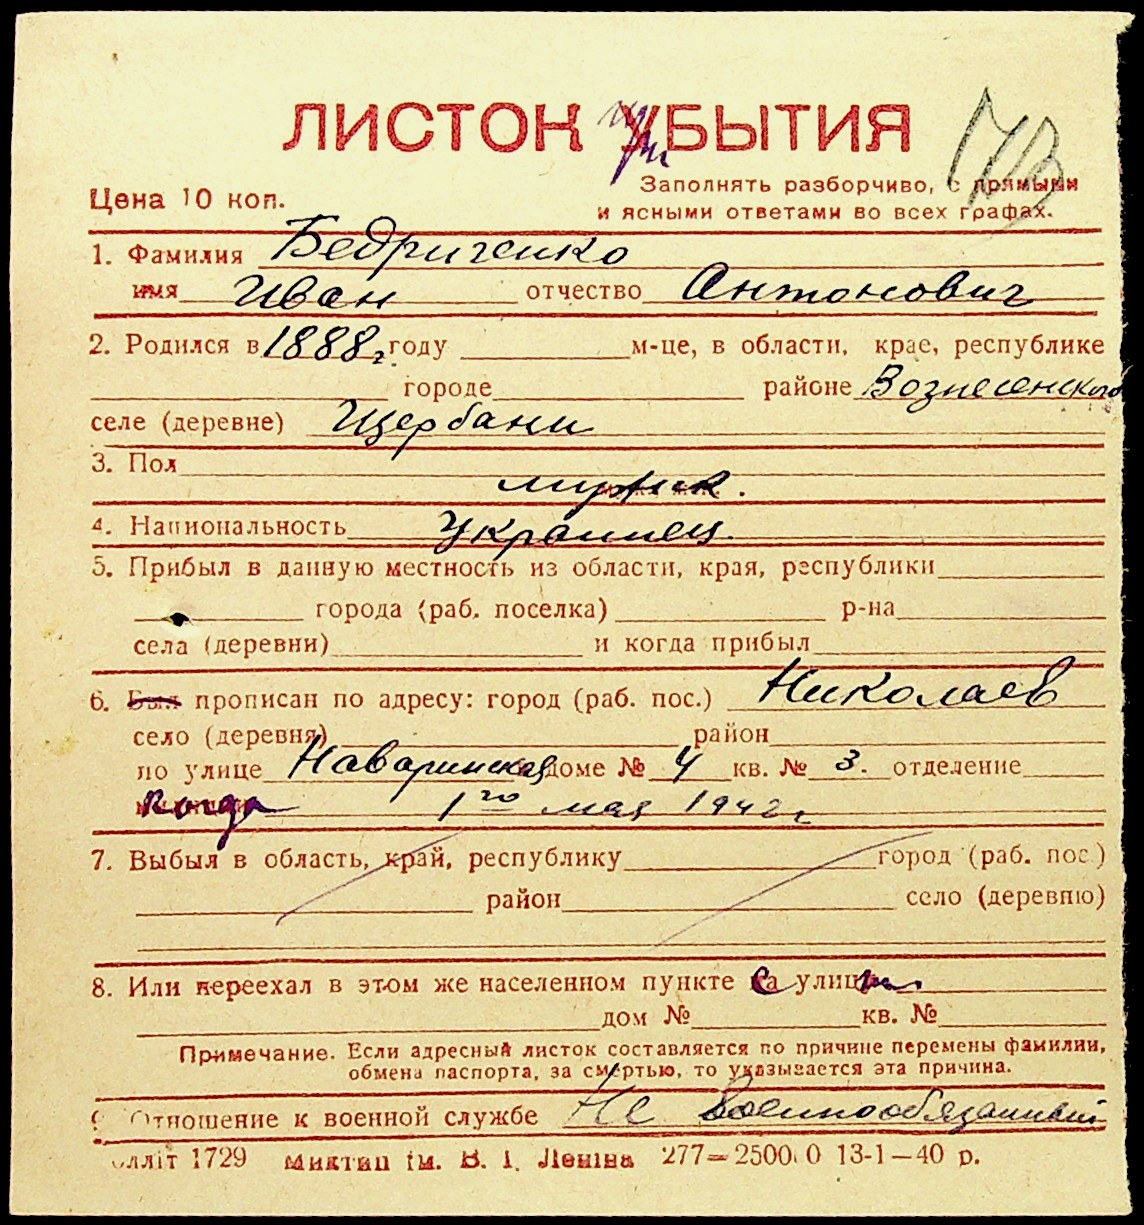 ЛИСТОК УБЫТИЯ
Цена 10 коп.
Заполнять разборчиво, с прямыми
и ясными ответами во всех графах.
1. Фамилия Бедриченко
имя Иван отчество Антонович
2. Родился в 1888 г. году м-це, в области, крае, республике
городе районе Вознесенского
селе (деревне) Щербани
3. Пол
мужск.
4. Национальность Украинец.
5. Прибыл в данную местность из области, края, республики
города (раб. поселка) р-на
села (деревни) и когда прибыл
6. Был прописан по адресу: город (раб. пос.) Николаев
село (деревня) район
по улице Наваринская доме № 4 кв. № 3. отделение
когда 1го мая 1942 г
7. Выбыл в область, край, республику город (раб. пос.)
район село (деревню)
8. Или переехал в этом же населенном пункте с улицы
дом № кв. №
Примечание. Если адресный листок составляется по причине перемены фамилии,
обмена паспорта, за смертью, то указывается эта причина.
Отношение к военной службе Не военнообязанный
1729 Миктип ім. В. І. Леніна 277—2500 0 13-1—40 р.